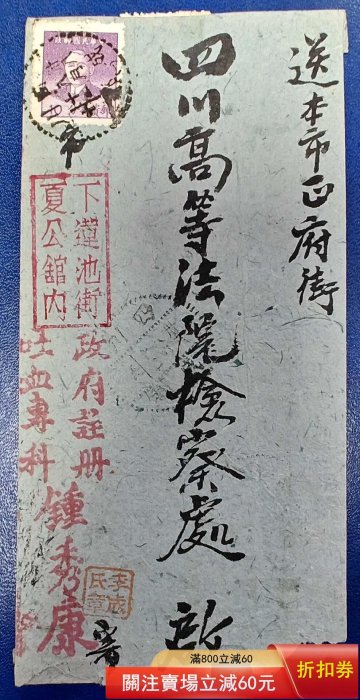 送本市正府街
四川高等法院檢察處
市
下蓮池街
夏公舘內
政府註冊
吐血專科
鍾秀康
寄
滿800立減60
關注賣場立減60元
折扣券